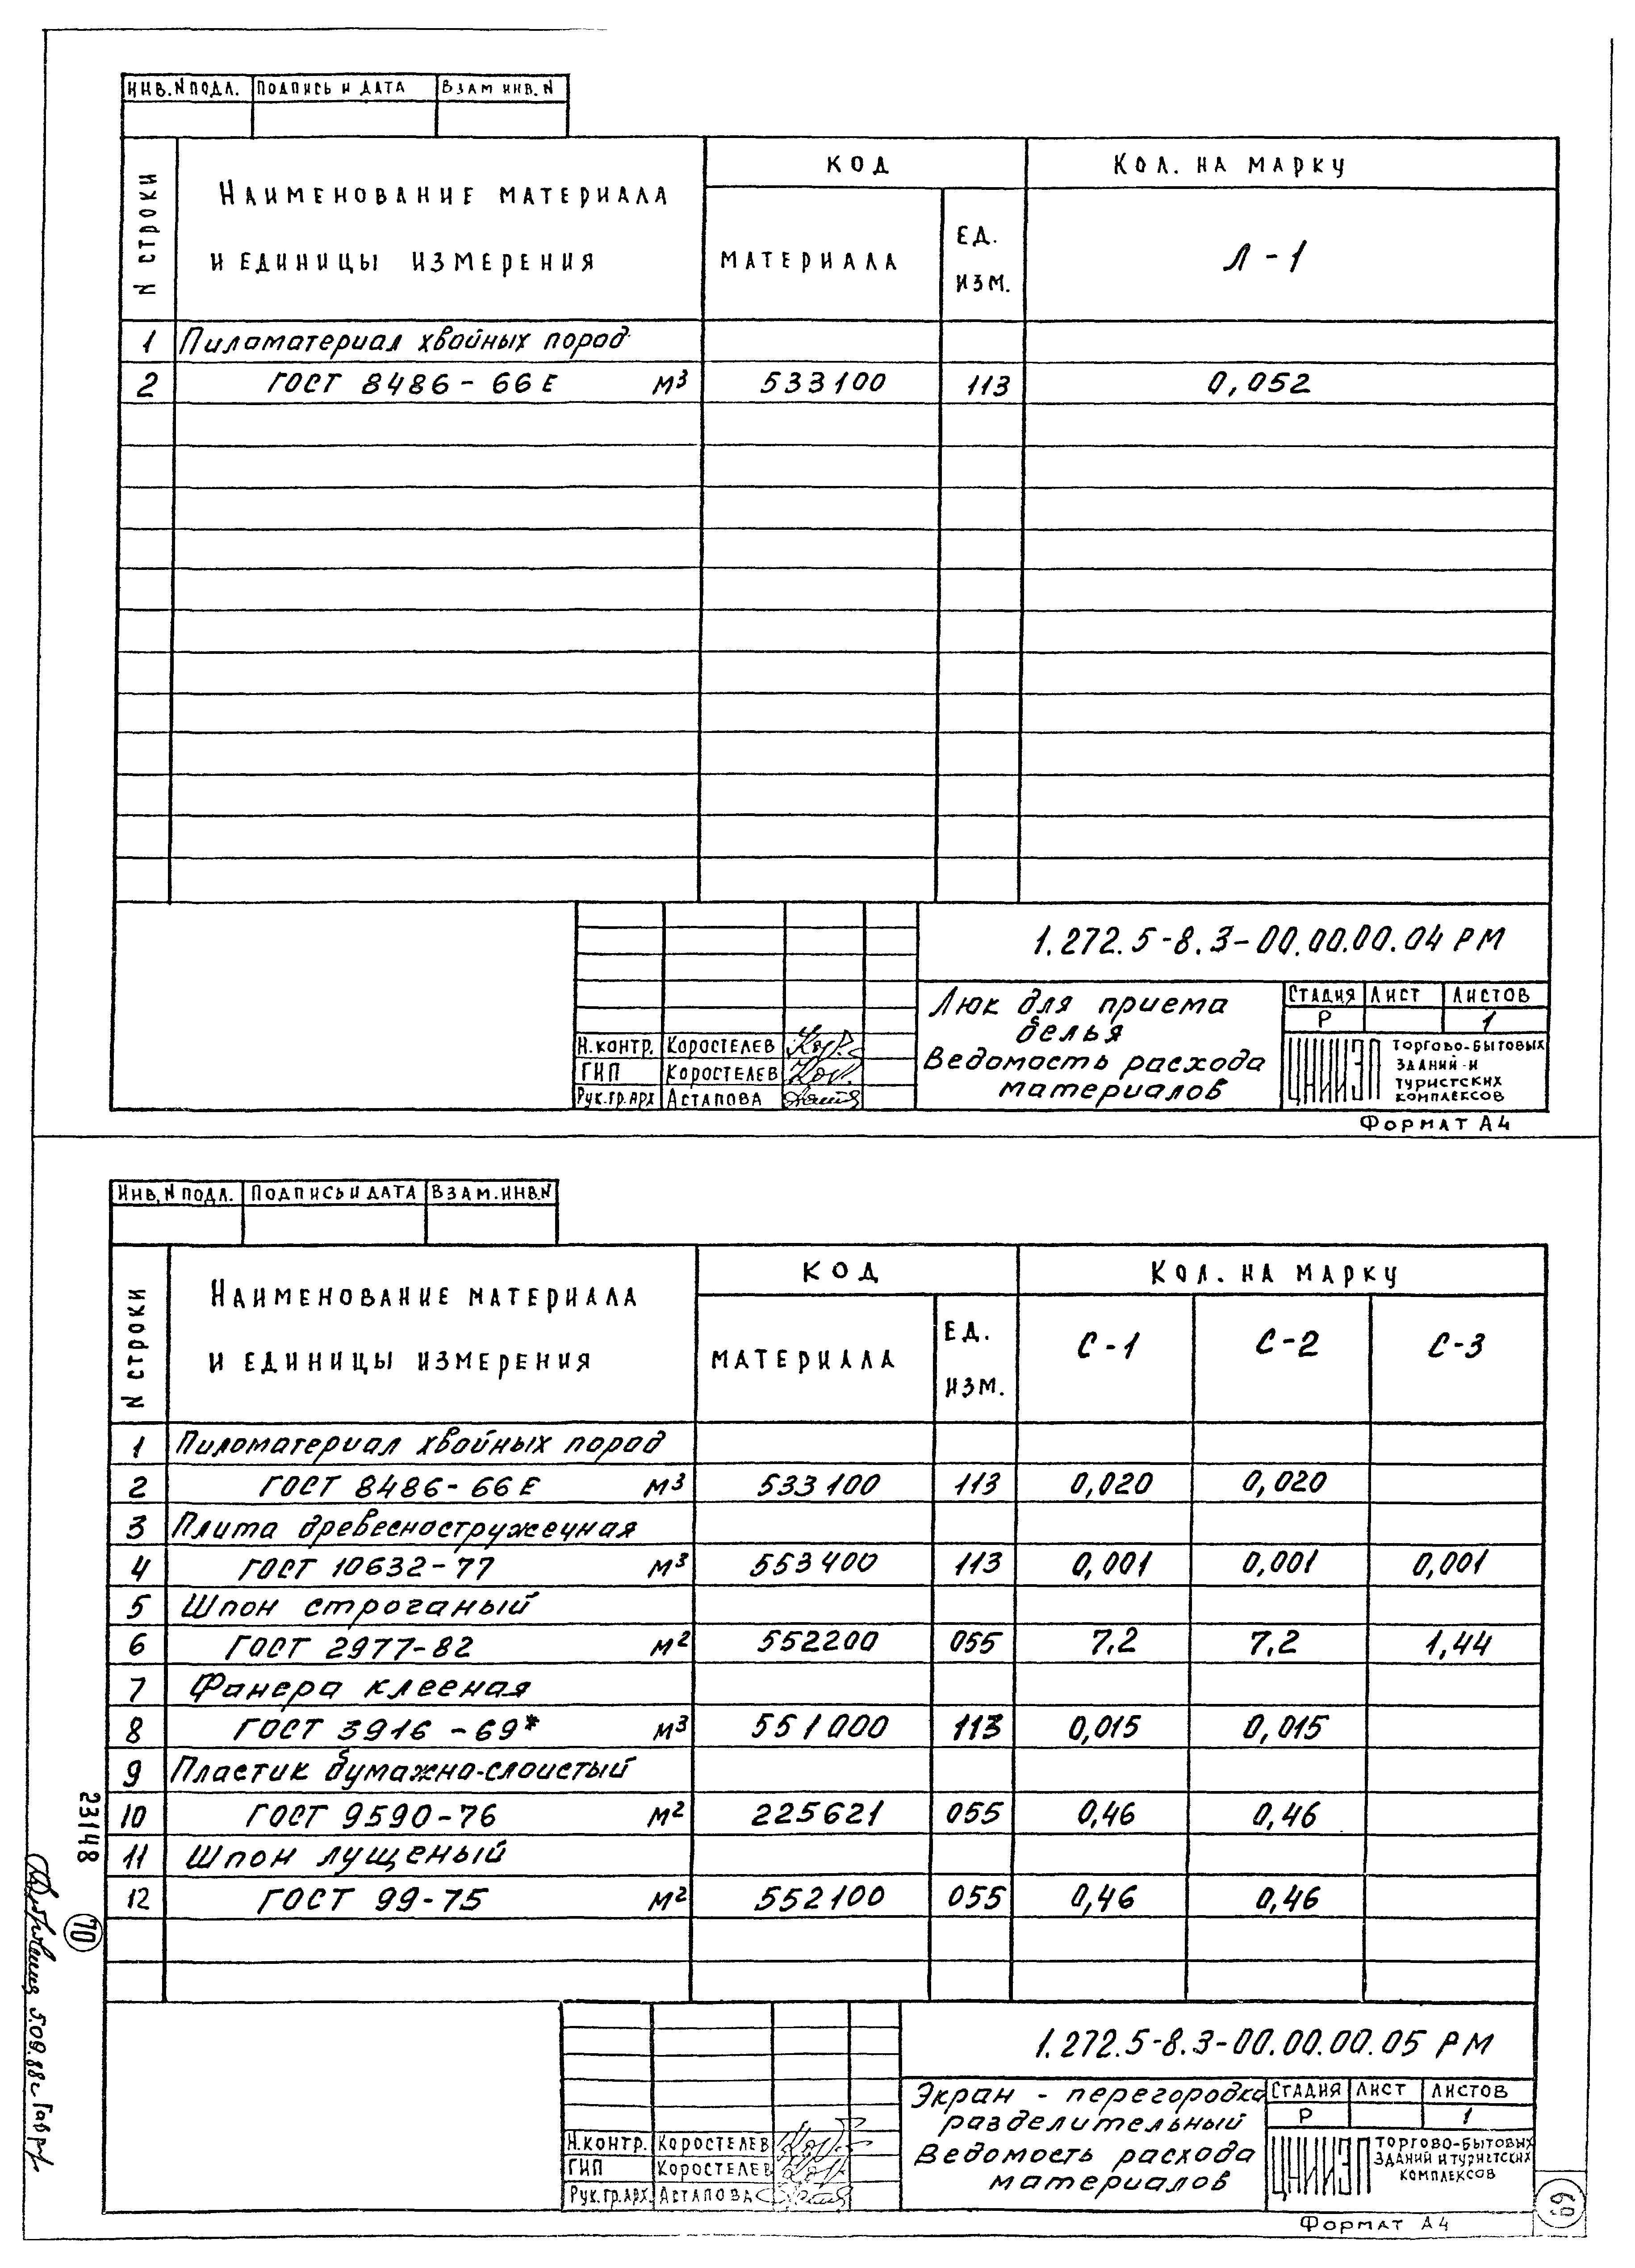 Инв. N подл. Подпись и дата Взам инв. N
N строки Наименование материала и единицы измерения Код Кол. на марку
материала Ед. изм. Л-1
1 Пиломатериал хвойных пород
2 ГОСТ 8486-66Е м³ 533100 113 0,052
1.272.5-8.3-00.00.00.04 РМ
Люк для приема белья
Ведомость расхода материалов
Стадия Лист Листов
Р 1
Н.контр. Коростелев
ГИП Коростелев
Рук.гр.арх Астапова
ЦНИИЭП торгово-бытовых зданий и туристских комплексов
Формат А4
Инв. N подл. Подпись и дата Взам. инв. N
N строки Наименование материала и единицы измерения Код Кол. на марку
материала Ед. изм. С-1 С-2 С-3
1 Пиломатериал хвойных пород
2 ГОСТ 8486-66Е м³ 533100 113 0,020 0,020
3 Плита древесностружечная
4 ГОСТ 10632-77 м³ 553400 113 0,001 0,001 0,001
5 Шпон строганый
6 ГОСТ 2977-82 м² 552200 055 7,2 7,2 1,44
7 Фанера клееная
8 ГОСТ 3916-69* м³ 551000 113 0,015 0,015
9 Пластик бумажно-слоистый
10 ГОСТ 9590-76 м² 225621 055 0,46 0,46
11 Шпон лущеный
12 ГОСТ 99-75 м² 552100 055 0,46 0,46
1.272.5-8.3-00.00.00.05 РМ
Экран - перегородка разделительный
Ведомость расхода материалов
Стадия Лист Листов
Р 1
Н.контр. Коростелев
ГИП Коростелев
Рук.гр.арх. Астапова
ЦНИИЭП торгово-бытовых зданий и туристских комплексов
Формат А4
23148
70
5.09.88г
69